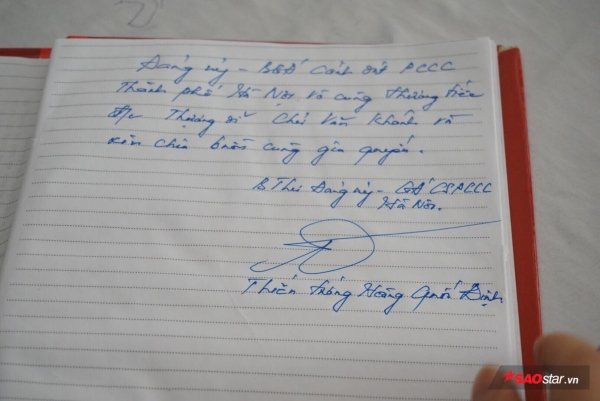 Đảng ủy - BGĐ Cảnh sát PCCC
Thành phố Hà Nội vô cùng thương tiếc
đ/c Thượng sĩ Chử Văn Khánh và
xin chia buồn cùng gia quyến.
B. Thư Đảng ủy - GĐ CSPCCC
Hà Nội.
Thiếu tướng Hoàng Quốc Định
SAOstar.vn